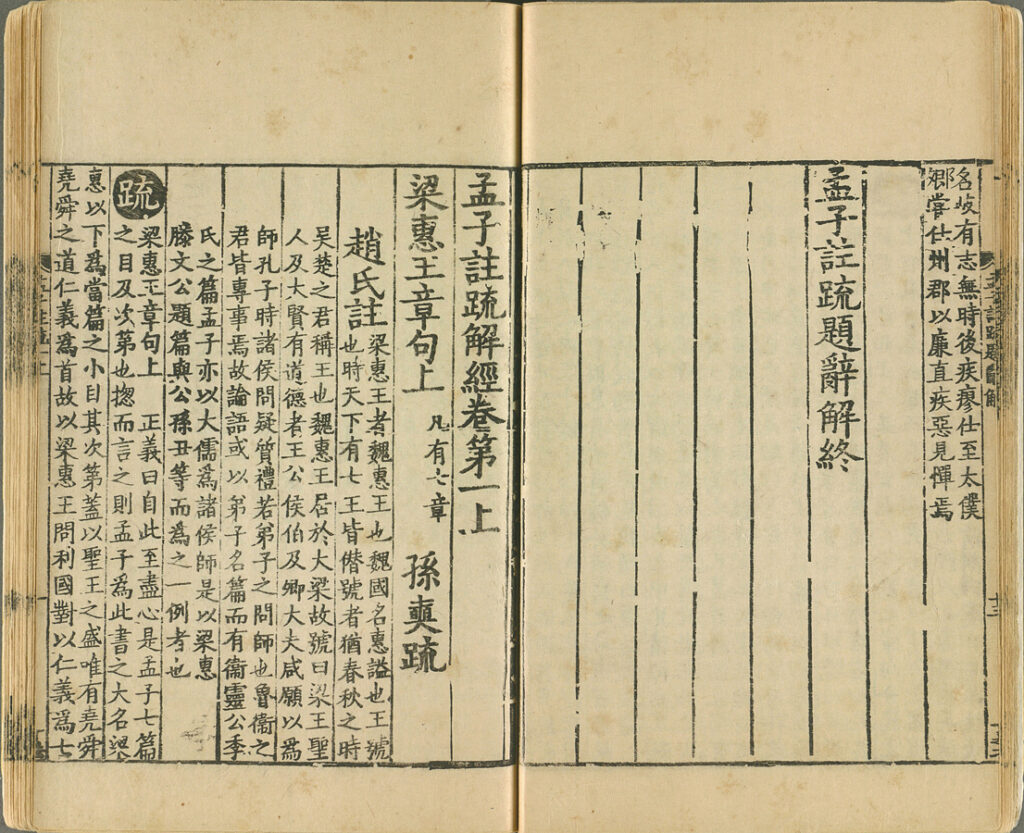 名岐有志無時後疾瘳仕至太僕
卿嘗仕州郡以廉直疾惡見憚焉
孟子註疏題辭解終
孟子註疏解經卷第一上
梁惠王章句上
凡有七章
孫奭疏
趙氏註
梁惠王者魏惠王也魏國名惠謚也王號
也時天下有七王皆僭號者猶春秋之時
吳楚之君稱王也魏惠王居於大梁故號曰梁王聖
人及大賢有道德者王公侯伯及卿大夫咸願以爲
師孔子時諸侯問疑質禮若弟子之問師也魯衞之
君皆專事焉故論語或以弟子名篇而有衞靈公季
氏之篇孟子亦以大儒爲諸侯師是以梁惠
滕文公題篇與公孫丑等而爲之一例者也
疏
梁惠王章句上 正義曰自此至盡心是孟子七篇
之目及次第也揔而言之則孟子爲此書之大名梁
惠以下爲當篇之小目其次第蓋以聖王之盛唯有堯舜
堯舜之道仁義爲首故以梁惠王問利國對以仁義爲七